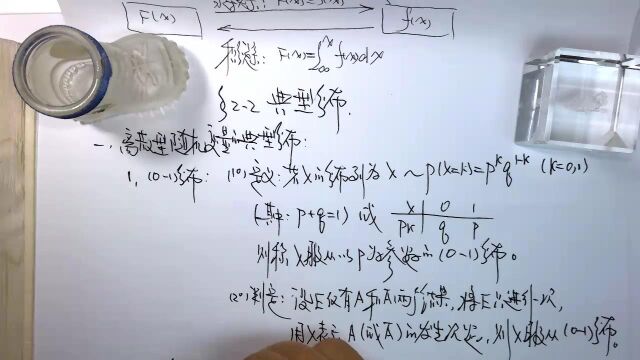 F(x) f(x)
积分: F(x)=∫_{-∞}^{x} f(x)dx
§2-2 典型分布.
一、离散型随机变量的典型分布:
1、(0-1)分布: (1°)定义: 若X的分布列为 X ~ P(X=k)=p^k q^{1-k} (k=0,1)
(其中: p+q=1) 或 X 0 1
pk q p
则称X服从以p为参数的(0-1)分布。
(2°)判定: 设E仅有A和Ā两个结果, 将E只进行一次,
用X表示A(或Ā)的发生次数, 则X服从(0-1)分布。